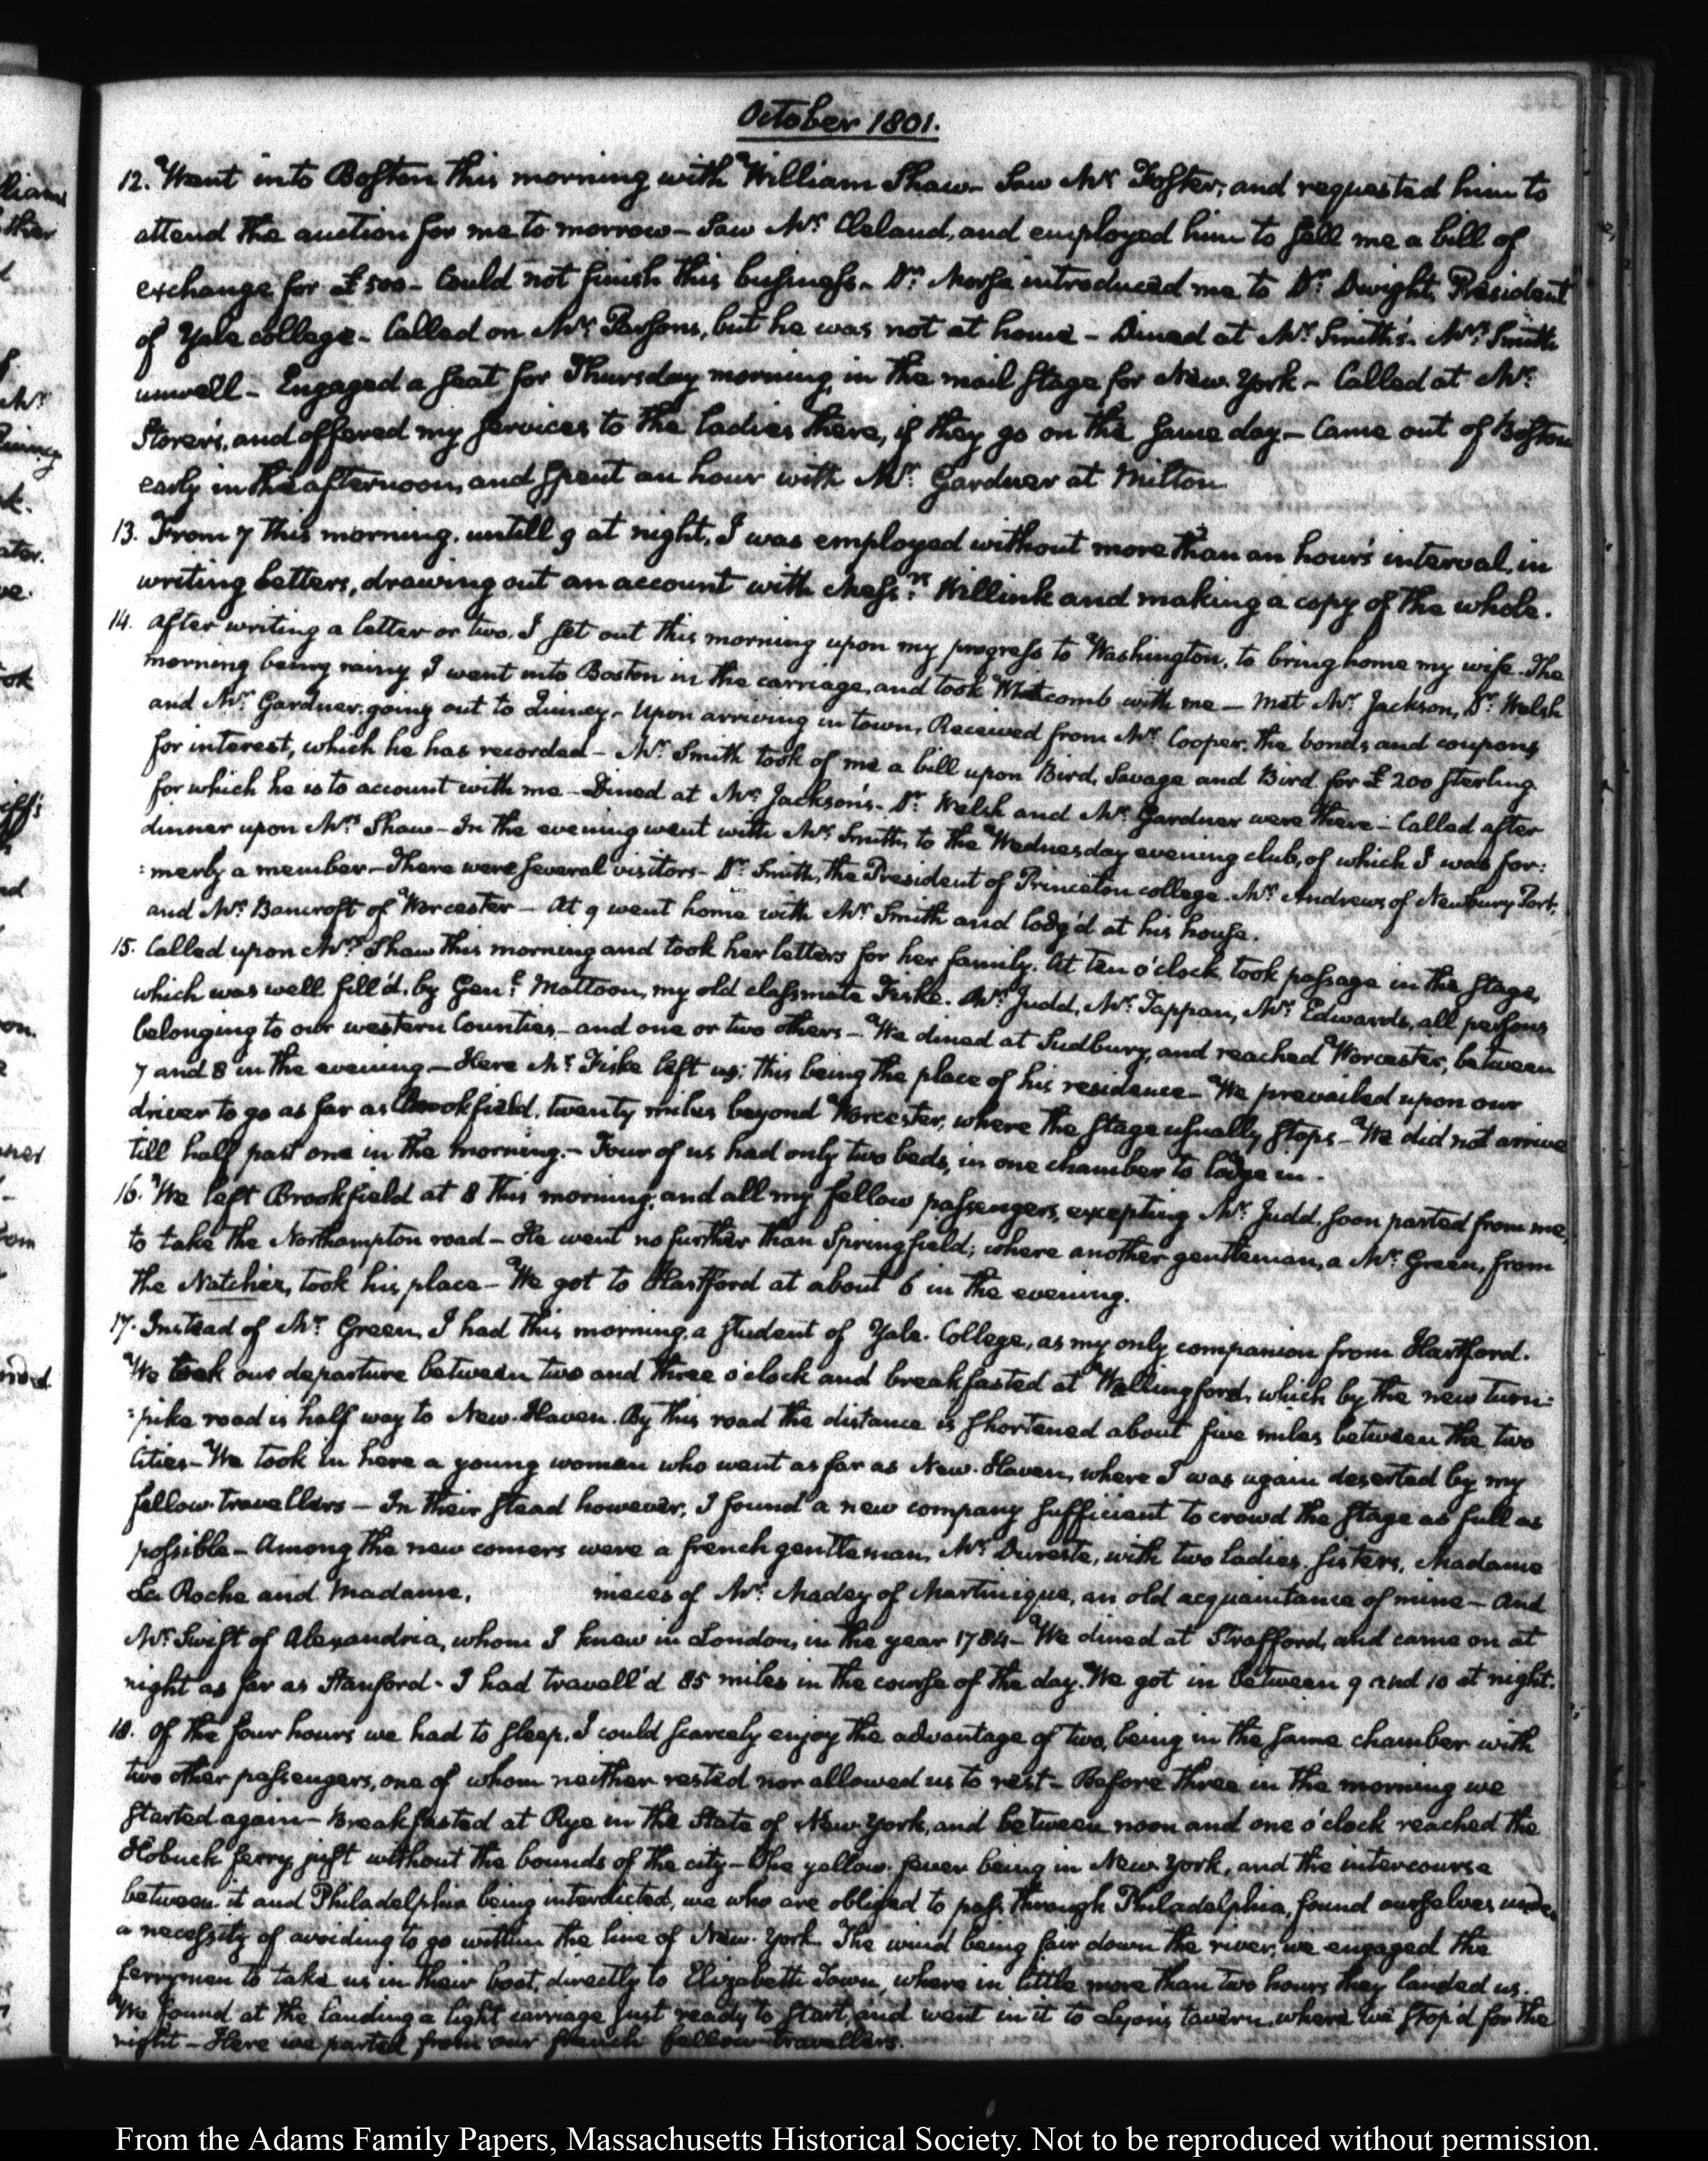 October 1801.
12. Went into Boston this morning with William Shaw - Saw Mr. Foster, and requested him to
attend the auction for me to morrow - Saw Mr. Cleland, and employed him to sell me a bill of
exchange for £500 - Could not finish this business. - Dr. Morse introduced me to Dr. Dwight, President
of Yale college - Called on Mr. Parsons, but he was not at home - Dined at Mr. Smith's. Mrs. Smith
unwell - Engaged a seat for Thursday morning, in the mail stage for New-York - Called at Mr.
Storer's, and offered my services to the ladies there, if they go on the same day - Came out of Boston
early in the afternoon, and spent an hour with Mr. Gardner at Milton
13. From 7 this morning, untill 9 at night, I was employed without more than an hour's interval, in
writing letters, drawing out an account with Messrs. Willink and making a copy of the whole.
14. After writing a letter or two, I set out this morning upon my progress to Washington, to bring home my wife. The
morning being rainy I went into Boston in the carriage, and took Whitcomb with me - Met Mr. Jackson, Dr. Welsh
and Mr. Gardner, going out to Quincy - Upon arriving in town, Received from Mr. Cooper, the bonds and coupons
for interest, which he has recorded - Mr. Smith took of me a bill upon Bird, Savage and Bird for £200 sterling
for which he is to account with me - Dined at Mr. Jackson's - Dr. Welsh and Mr. Gardner were there - Called after
dinner upon Mrs. Shaw - In the evening went with Mr. Smith, to the Wednesday evening club, of which I was for:
:merly a member - There were several visitors - Dr. Smith, the President of Princeton college - Mr. Andrews of Newbury Port,
and Mr. Bancroft of Worcester - At 9 went home with Mr. Smith and lodg'd at his house.
15. Called upon Mrs. Shaw this morning and took her letters for her family. At ten o'clock, took passage in the stage,
which was well fill'd, by Genl. Mattoon, my old classmate Fiske, Mr. Judd, Mr. Tappan, Mr. Edwards, all persons
belonging to our western Counties - and one or two others - We dined at Sudbury, and reached Worcester, between
7 and 8 in the evening - Here Mr. Fiske left us; this being the place of his residence - We prevailed upon our
driver to go as far as Brookfield, twenty miles beyond Worcester, where the stage usually stops - We did not arrive
till half past one in the morning. - Four of us had only two beds, in one chamber to lodge in.
16. We left Brookfield at 8 this morning; and all my fellow passengers, excepting Mr. Judd, soon parted from me,
to take the Northampton road - He went no further than Springfield; where another gentleman, a Mr. Green, from
the Natchez, took his place - We got to Hartford at about 6 in the evening.
17. Instead of Mr. Green, I had this morning, a student of Yale-College, as my only companion from Hartford.
We took our departure between two and three o'clock and breakfasted at Wallingford, which by the new turn:
:pike road is half way to New-Haven. By this road the distance is shortened about five miles between the two
Cities - We took in here a young woman who went as far as New-Haven, where I was again deserted by my
fellow-travellers - In their stead however, I found a new company sufficient to crowd the stage as full as
possible - Among the new comers were a french gentleman, Mr. Dureste, with two ladies, sisters, Madame
La Roche and Madame, nieces of Mr. Madey of Martinique, an old acquaintance of mine - And
Mr. Swift of Alexandria, whom I knew in London, in the year 1784 - We dined at Strafford, and came on at
night as far as Stanford - I had travell'd 85 miles in the course of the day. We got in between 9 and 10 at night.
18. Of the four hours we had to sleep, I could scarcely enjoy the advantage of two, being in the same chamber with
two other passengers, one of whom neither rested nor allowed us to rest - Before three in the morning we
started again - Breakfasted at Rye in the State of New-York, and between noon and one o'clock reached the
Hobuck ferry, just without the bounds of the city - The yellow-fever being in New-York, and the intercourse
between it and Philadelphia being interdicted, we who are obliged to pass through Philadelphia, found ourselves under
a necessity of avoiding to go within the line of New-York. The wind being fair down the river, we engaged the
ferrymen to take us in their boat, directly to Elizabeth Town, where in little more than two hours they landed us.
We found at the landing a light carriage just ready to start, and went in it to Lyon's tavern, where we stop'd for the
night - Here we parted from our french fellow-travellers.
From the Adams Family Papers, Massachusetts Historical Society. Not to be reproduced without permission.